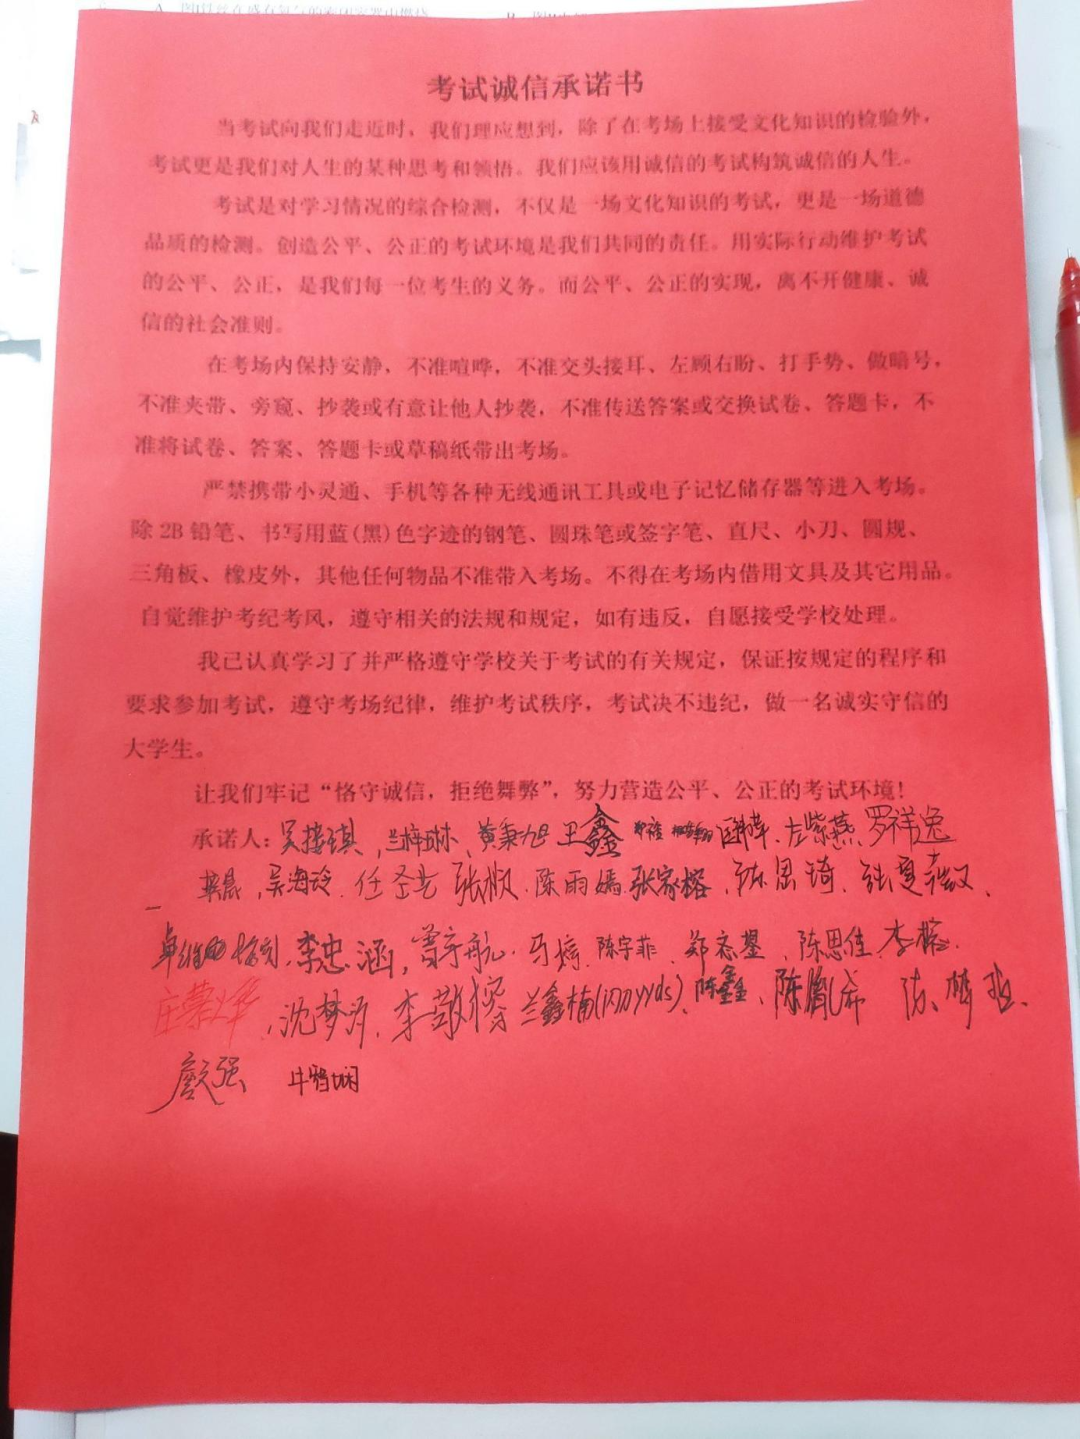 考试诚信承诺书
当考试向我们走近时，我们理应想到，除了在考场上接受文化知识的检验外，
考试更是我们对人生的某种思考和领悟。我们应该用诚信的考试构筑诚信的人生。
考试是对学习情况的综合检测，不仅是一场文化知识的考试，更是一场道德
品质的检测。创造公平、公正的考试环境是我们共同的责任。用实际行动维护考试
的公平、公正，是我们每一位考生的义务。而公平、公正的实现，离不开健康、诚
信的社会准则。
在考场内保持安静，不准喧哗，不准交头接耳、左顾右盼、打手势、做暗号，
不准夹带、旁窥、抄袭或有意让他人抄袭，不准传送答案或交换试卷、答题卡，不
准将试卷、答案、答题卡或草稿纸带出考场。
严禁携带小灵通、手机等各种无线通讯工具或电子记忆储存器等进入考场。
除 2B 铅笔、书写用蓝(黑)色字迹的钢笔、圆珠笔或签字笔、直尺、小刀、圆规、
三角板、橡皮外，其他任何物品不准带入考场。不得在考场内借用文具及其它用品。
自觉维护考纪考风，遵守相关的法规和规定，如有违反，自愿接受学校处理。
我已认真学习了并严格遵守学校关于考试的有关规定，保证按规定的程序和
要求参加考试，遵守考场纪律，维护考试秩序，考试决不违纪，做一名诚实守信的
大学生。
让我们牢记“恪守诚信，拒绝舞弊”，努力营造公平、公正的考试环境！
承诺人：兰梓琳、黄秉旭 王鑫 左紫燕 罗祥逸
吴海玲 陈雨嫣 张家榕 陈思琦
李忠涵，曾宇航 马婷 陈宇菲 陈思佳
沈梦 兰鑫楠 yyds) 陈鑫
强